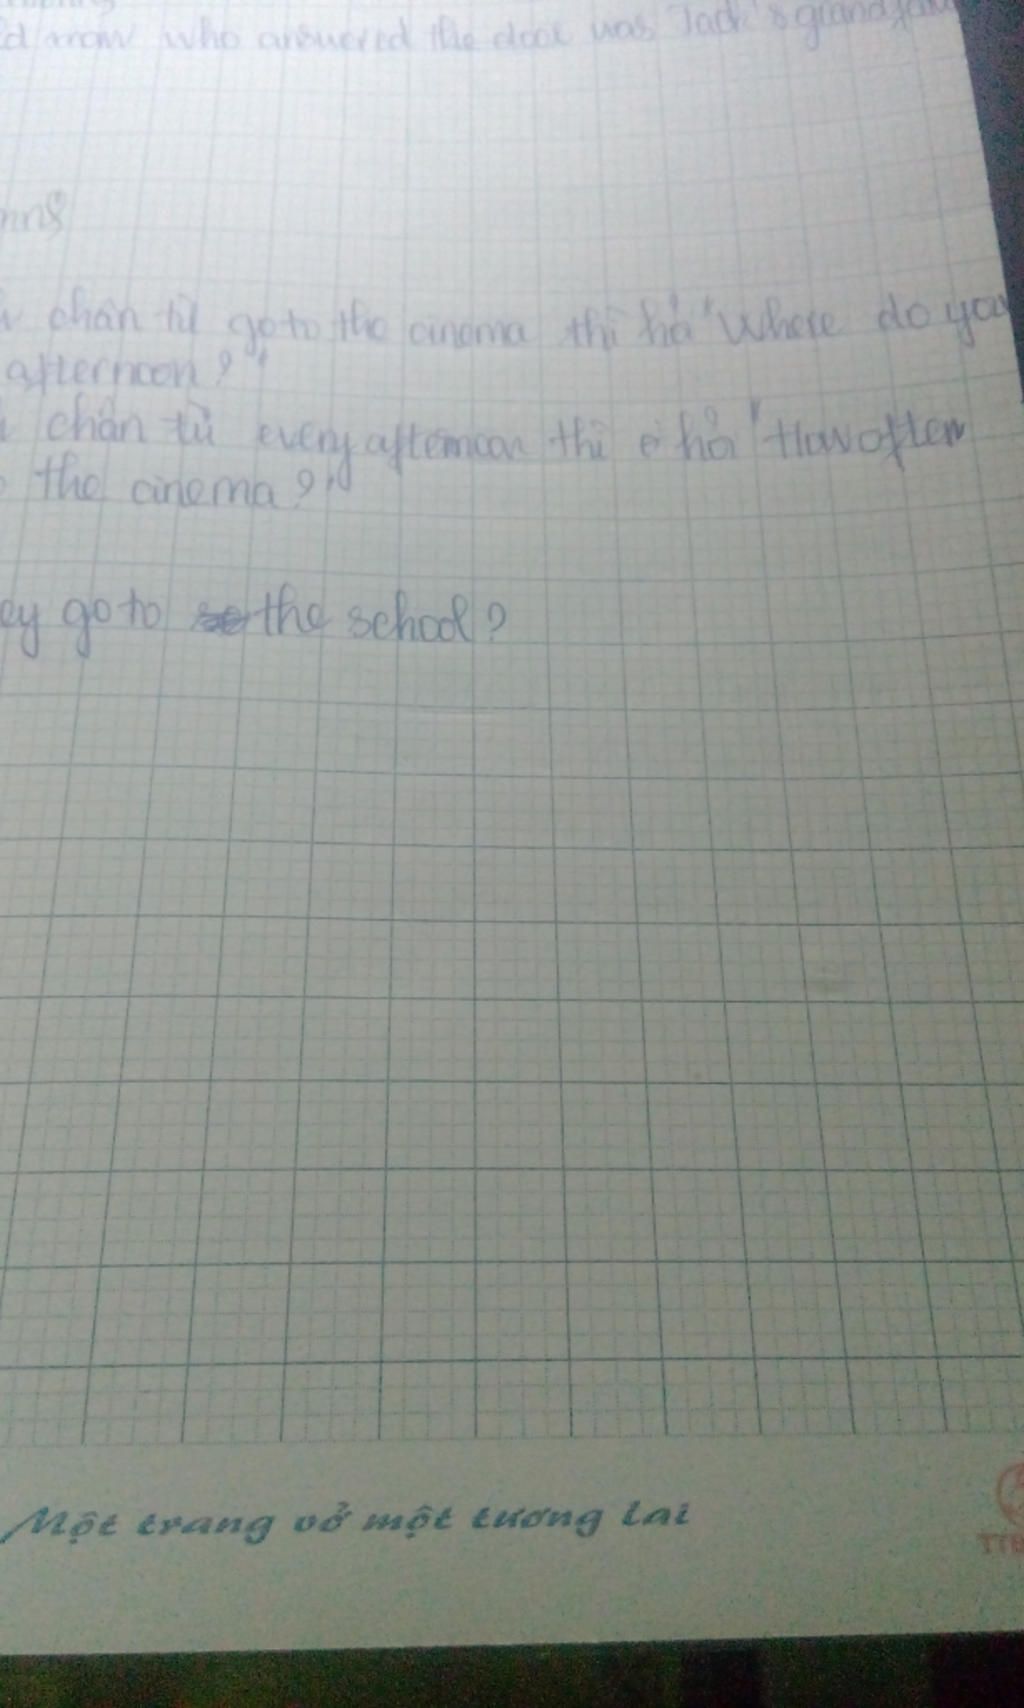 who answered the door was Jack's
chân từ go to the cinema thì hỏ "Where do you
afternoon?"
chân từ every afternoon thì hỏ "How often
the cinema?"
ey go to the school?
Một trang vở một tương lai